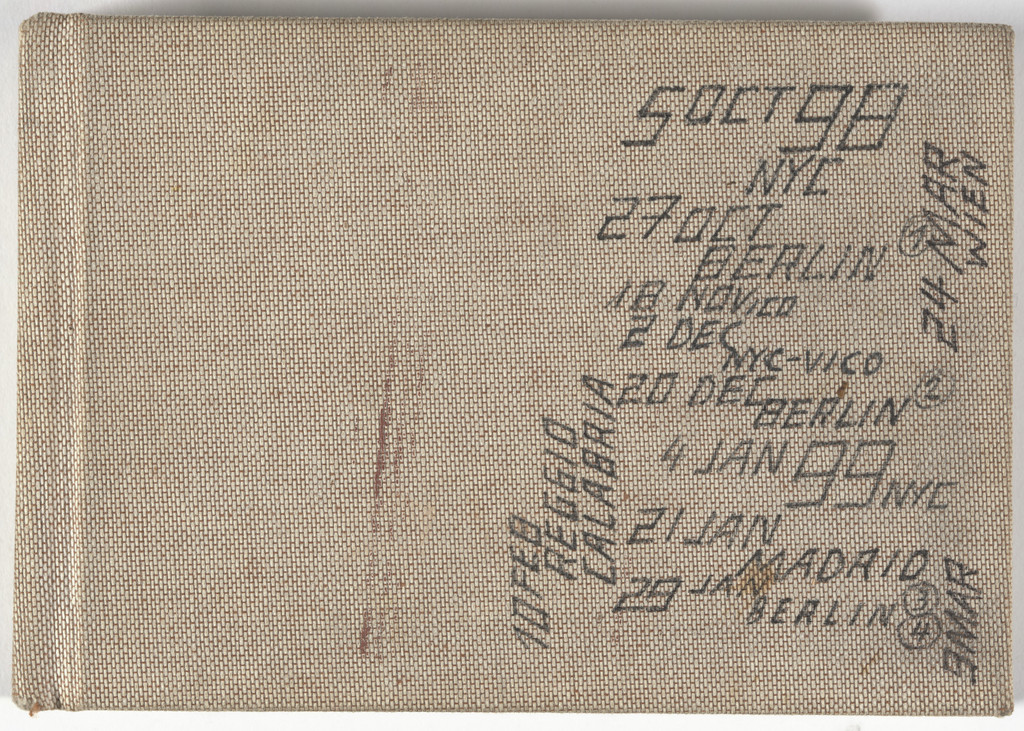 5 OCT 98
-NYC
27 OCT
BERLIN
18 NOV ICO
2 DEC
NYC-VICO
20 DEC
BERLIN ②
4 JAN 99 NYC
21 JAN
MADRID
29 JAN
BERLIN ③
④
10 FEB
REGGIO
CALABRIA
9 MAR
24 MAR
WIEN